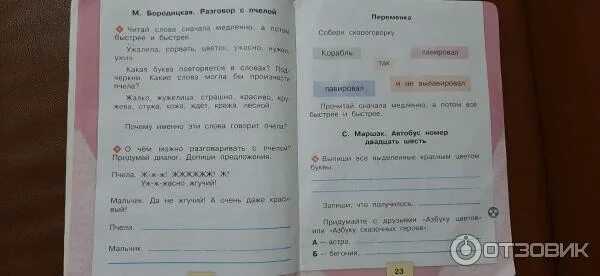 М. Бородицкая. Разговор с пчелой
Читай слова сначала медленно, а потом
быстрее и быстрее.
Ужалила, сорвать, цветок, ужасно, нужно,
ужин.
Какая буква повторяется в словах? Под-
черкни. Какие слова могла бы произнести
пчела?
Жалко, жужелица, страшно, красиво, кру-
жева, стужа, кожа, ждёт, кряжа, лесной.
Почему именно эти слова говорит пчела?
О чём можно разговаривать с пчелой?
Придумай диалог. Допиши предложения.
Пчела. Ж-ж-ж! ЖЖЖЖЖ! Ж!
Уж-ж-жасно жгучий!
Мальчик. Да не жгучий! А очень даже краси-
вый!
Пчела.
Мальчик.
Переменка
Собери скороговорку.
Корабль
лавировал
так
лавировал
и не вылавировал
Прочитай сначала медленно, а потом всё
быстрее и быстрее.
С. Маршак. Автобус номер
двадцать шесть
Выпиши все выделенные красным цветом
буквы.
Запиши, что получилось.
Придумайте с друзьями «Азбуку цветов»
или «Азбуку сказочных героев».
А — астра,
Б — бегония,
23
ОТЗОВИК